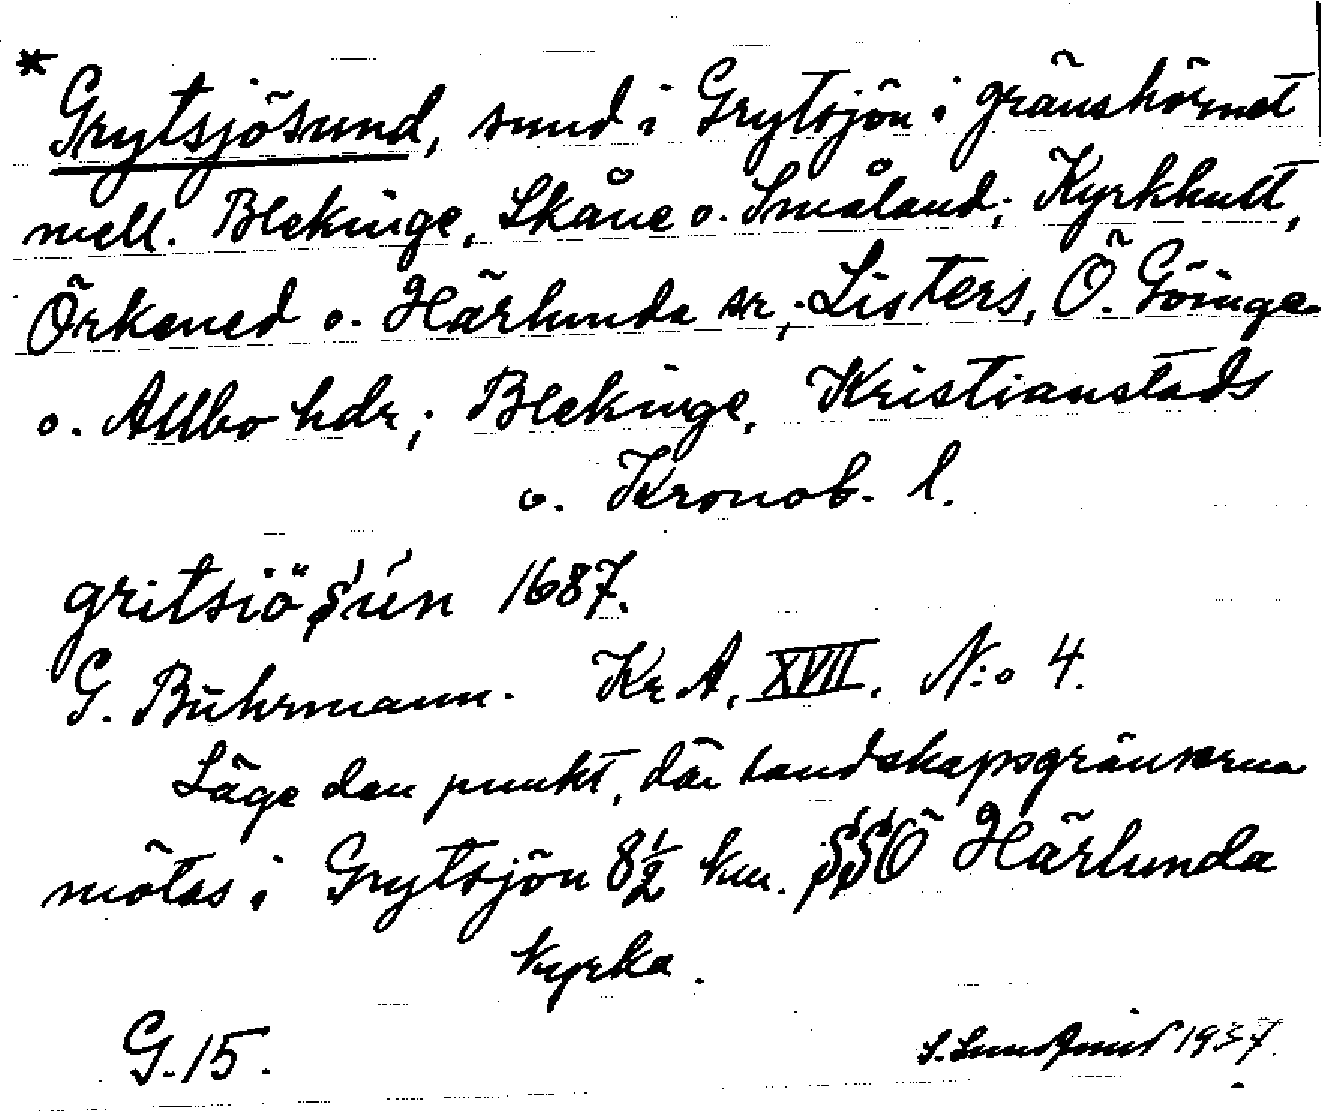 * Grytsjösund, sund i Grytsjön i gränshörnet
mell. Blekinge, Skåne o. Småland; Kyrkhult,
Örkened o. Härlunda sr; Listers, Ö. Göinge
o. Allbo hdr; Blekinge, Kristianstads
o. Kronob. l.
gritsiö sún 1687.
G. Buhrmann. Kr A, XVII. N:o 4.
Läge den punkt, där landskapsgränserna
mötas i Grytsjön 8 1/2 km. SSÖ Härlunda
kyrka.
G. 15.
1937.